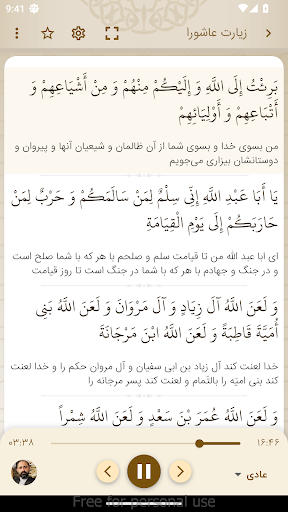 9:41
زیارت عاشورا
بَرِئْتُ إِلَى اللَّهِ وَ إِلَيْكُمْ مِنْهُمْ وَ مِنْ أَشْيَاعِهِمْ وَ
أَتْبَاعِهِمْ وَ أَوْلِيَائِهِمْ
من بسوی خدا و بسوی شما از آن ظالمان و شیعیان آنها و پیروان و
دوستانشان بیزاری می‌جویم
يَا أَبَا عَبْدِ اللَّهِ إِنِّي سِلْمٌ لِمَنْ سَالَمَكُمْ وَ حَرْبٌ لِمَنْ
حَارَبَكُمْ إِلَى يَوْمِ الْقِيَامَةِ
ای ابا عبد الله من تا قیامت سلم و صلحم با هر که با شما صلح است
و در جنگ و جهادم با هر که با شما در جنگ است تا روز قیامت
وَ لَعَنَ اللَّهُ آلَ زِيَادٍ وَ آلَ مَرْوَانَ وَ لَعَنَ اللَّهُ بَنِي
أُمَيَّةَ قَاطِبَةً وَ لَعَنَ اللَّهُ ابْنَ مَرْجَانَةَ
خدا لعنت کند آل زیاد بن ابی سفیان و آل مروان حکم را و خدا لعنت
کند بنی امیّه را بالتّمام و لعنت کند پسر مرجانه را
وَ لَعَنَ اللَّهُ عُمَرَ بْنَ سَعْدٍ وَ لَعَنَ اللَّهُ شِمْراً
۰۳:۳۸
۱۶:۴۶
عادی
Free for personal use